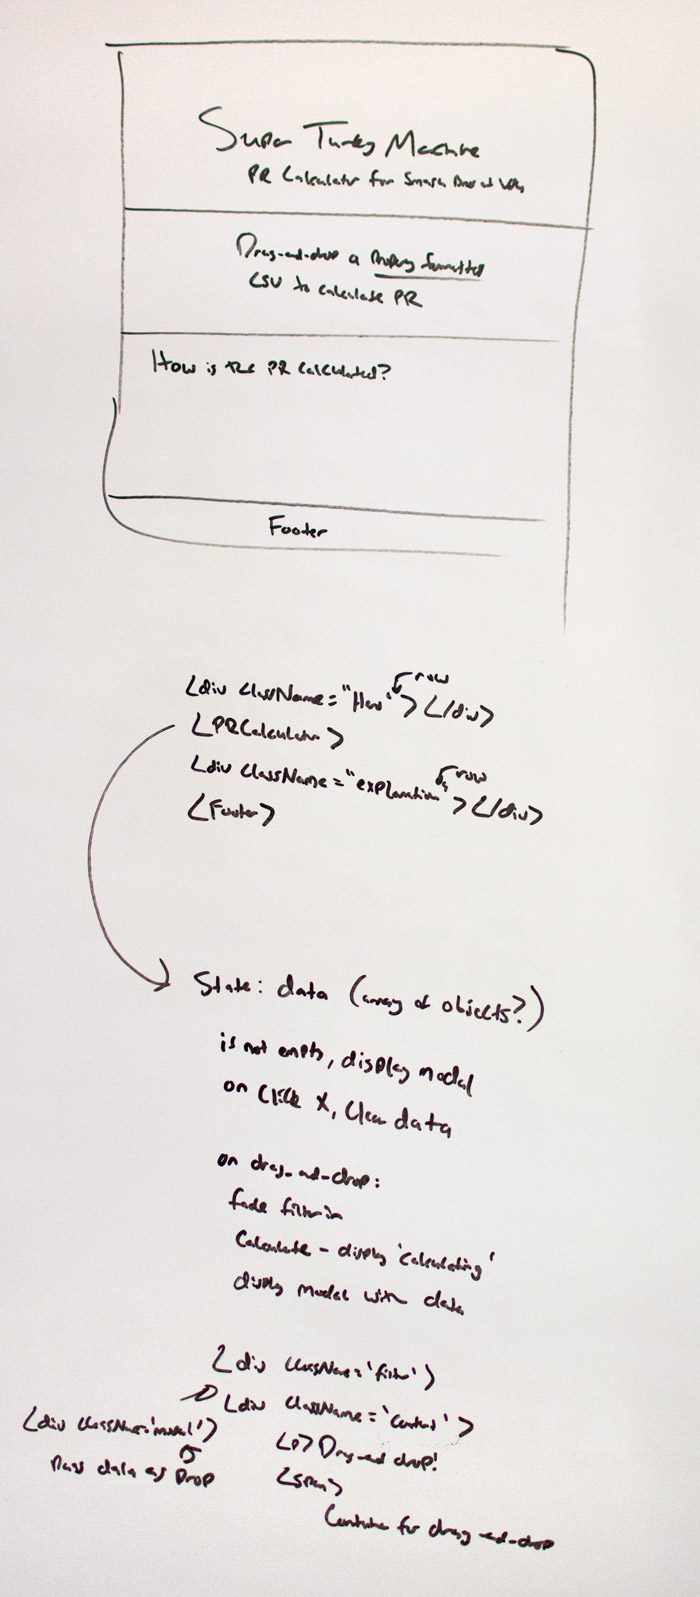 Super Turkey Machine
PR Calculator for Smash Bros at
Drag-and-drop a Properly formatted
CSV to calculate PR
How is the PR calculated?
Footer
row
<div className="Hero"></div>
<PRCalculator>
row
<div className="explanation"></div>
<Footer>
State: data (array of objects?)
is not empty, display modal
on click X, clear data
on drag-and-drop:
fade filter in
Calculate - display 'calculating'
display modal with data
<div className='filter'>
<div className='content'>
<div className='modal'>
<p> Drag-and drop!
Pass data as Prop
<span>
Container for drag-and-drop